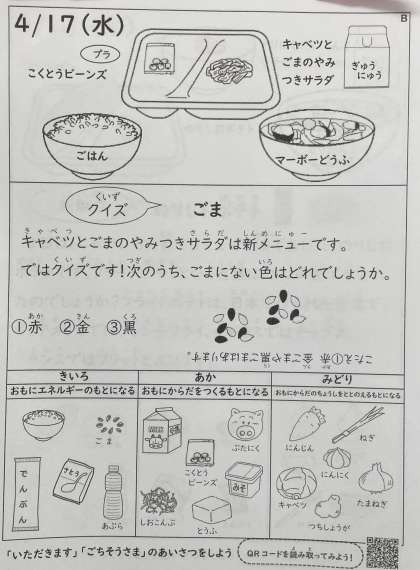 B
4/17(水)
プラ
こくとうビーンズ
キャベツと
ごまのやみ
つきサラダ
ぎゅう
にゅう
ごはん
マーボーどうふ
くいず
クイズ
ごま
きゃべつ さらだ しんめにゅー
キャベツとごまのやみつきサラダは新メニューです。
くいず つぎ いろ
ではクイズです!次のうち、ごまにない色はどれでしょうか。
あか きん くろ
①赤 ②金 ③黒
こたえ①赤 金ごまや黒ごまはあります。
きいろ あか みどり
おもにエネルギーのもとになる おもにからだをつくるもとになる おもにからだのちょうしをととのえるもとになる
ごま
でんぷん
さとう
あぶら
こくとう
ビーンズ
ぶたにく
みそ
しおこんぶ
とうふ
にんじん
ねぎ
にんにく
キャベツ
たまねぎ
つちしょうが
「いただきます」「ごちそうさま」のあいさつをしよう
QRコードを読み取ってみよう!